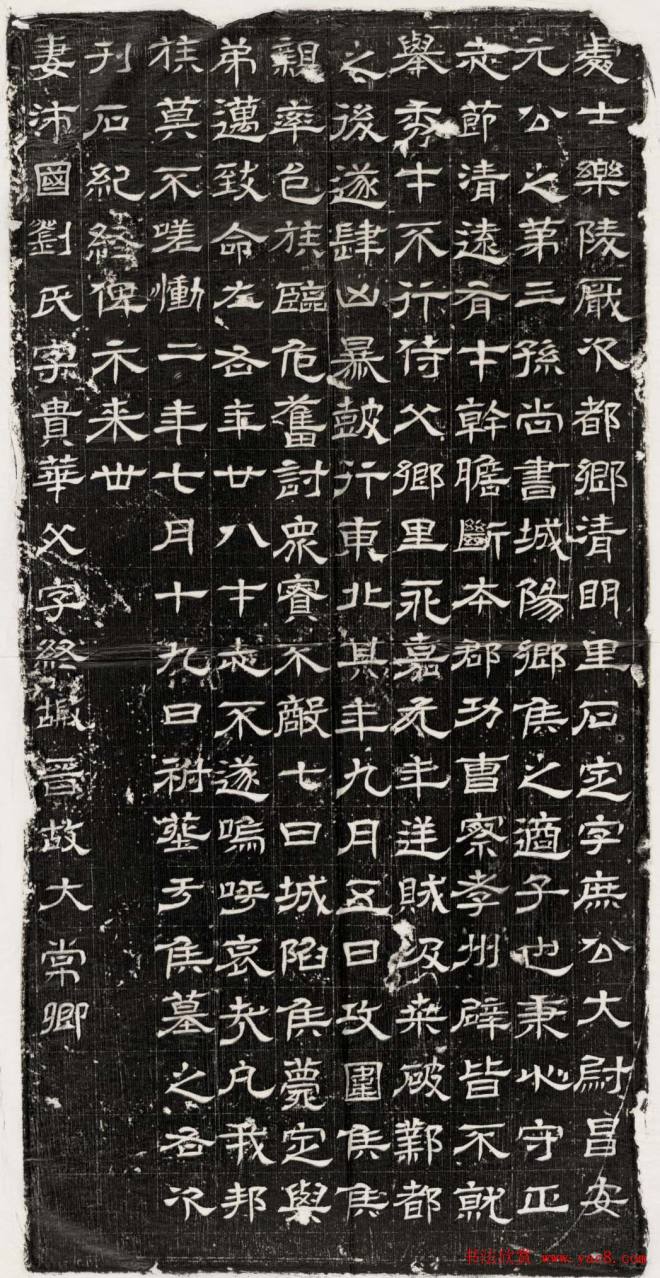 處士樂陵厭次都鄉清明里石定字庶公大尉昌安
元公之第三孫尚書城陽鄉侯之適子也秉心守正
志節清遠有才幹膽斷本郡功曹察孝州辟皆不就
舉秀才不行侍父鄉里永嘉元年逆賊汲桑破鄴都
之後遂肆凶暴鼓行東北其年九月五日攻圍侯侯
親率邑族臨危奮討衆寡不敵七日城陷侯薨定與
弟邁致命左右年廿八才志不遂嗚呼哀哉凡我邦
族莫不嗟慟二年七月十九日祔塟于侯墓之右次
刊石紀終俾示来世
妻沛國劉氏字貴華父字終嘏晉故大常卿
书法欣赏 www.yac8.com